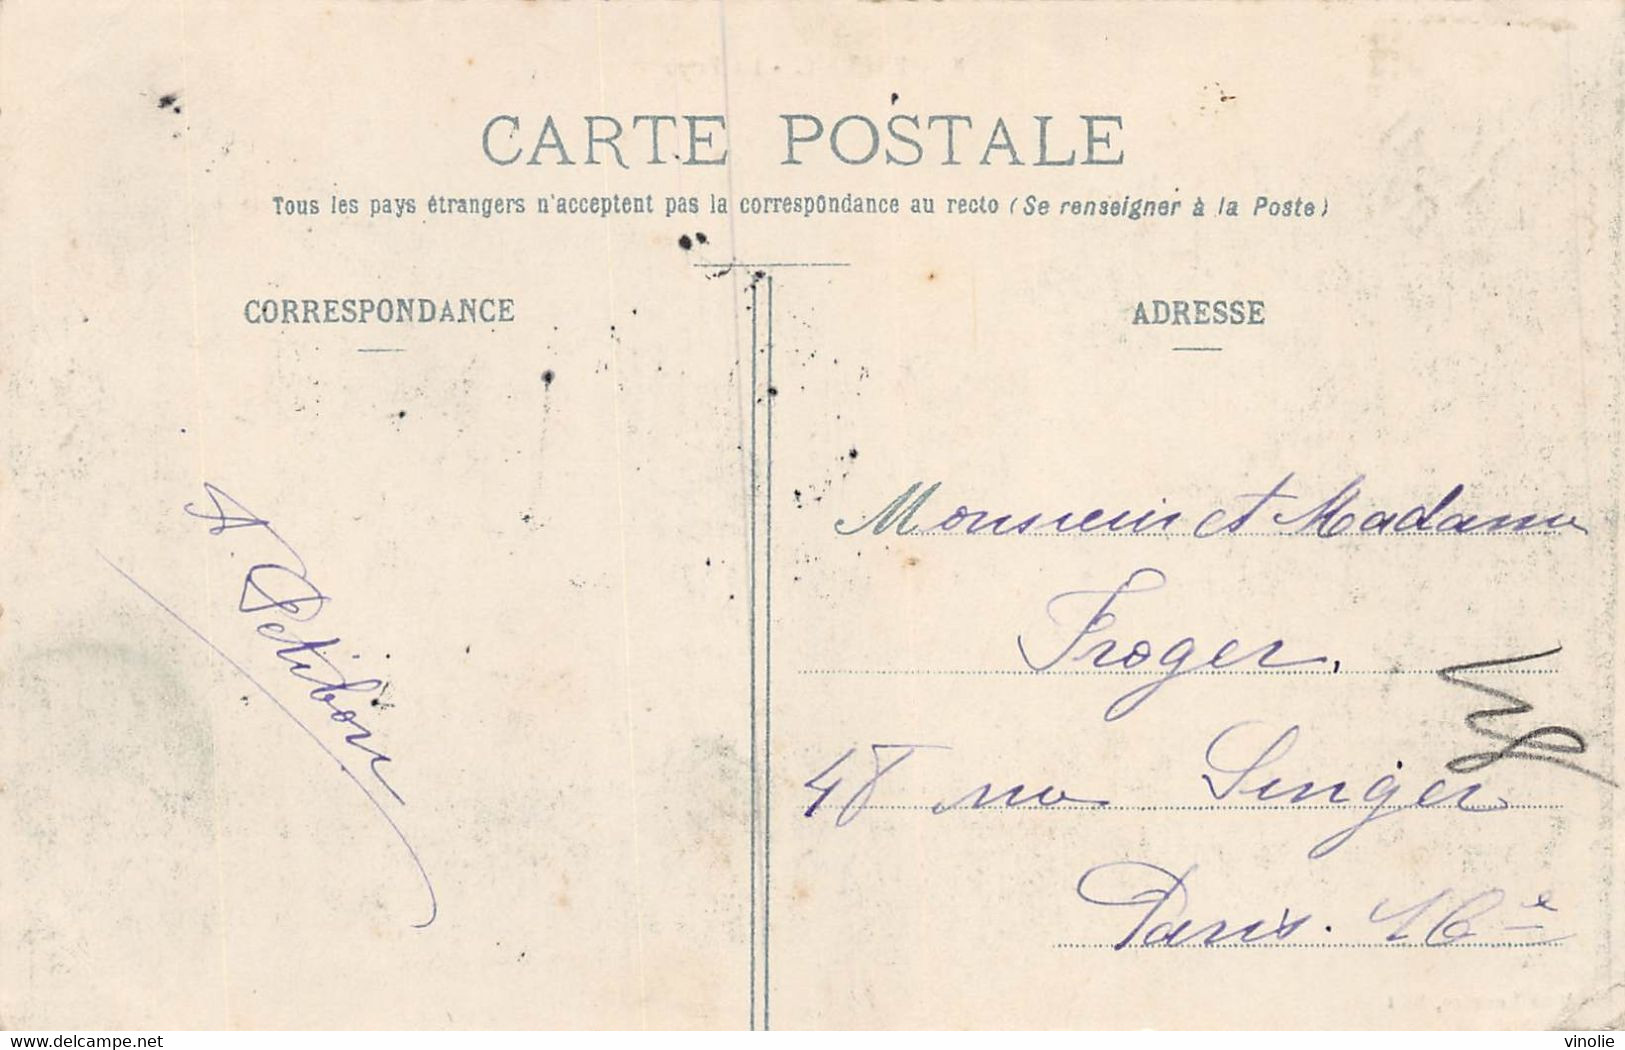 CARTE POSTALE
Tous les pays étrangers n'acceptent pas la correspondance au recto (Se renseigner à la Poste)
CORRESPONDANCE
ADRESSE
A. Petibon
Monsieur et Madame
Froger.
48 rue Singer
Paris. 16e
delcampe.net
vinolie